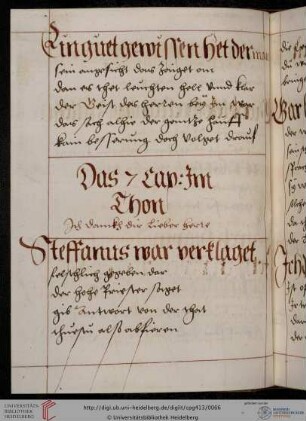 Ein guet gewissen Het der man
sein angesicht das zeuget on
dan es thet leuchten hell vnnd klar
der Geist des herren bey Im war
das sich alhie der gantze hauff
kam besserung doch volget darauf
Das 7 Cap: Im
Thon
Ich danckh dir Lieber herre
Steffanus war verklaget
felschlich gegeben dar
der hohe Priester saget
gib Antwort von der that
UNIVERSITÄTS-
BIBLIOTHEK
HEIDELBERG
http://digi.ub.uni-heidelberg.de/diglit/cpg413/0066
© Universitätsbibliothek Heidelberg